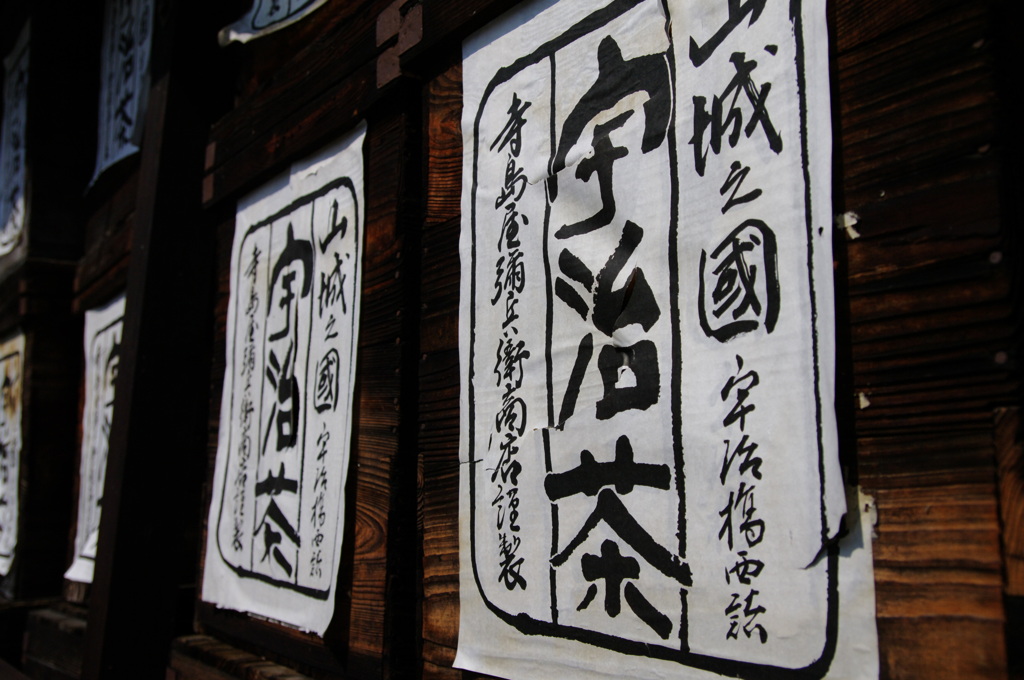 山城之國 宇治橋西詰
宇治茶
寺島屋彌兵衛商店謹製
山城之國 宇治橋西詰
宇治茶
寺島屋彌兵衛商店謹製